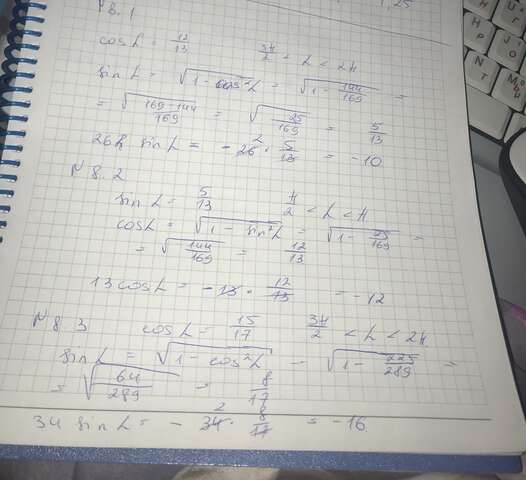 1,25
№8.1
cos L = 12/13   3π/2 < L < 2π
sin L = √(1 - cos²L) = √(1 - 144/169) =
= √((169-144)/169) = √(25/169) = 5/13
26 sin L = - 26 · 5/13 = -10
2
№8.2
sin L = 5/13   π/2 < L < π
cos L = √(1 - sin²L) = √(1 - 25/169) =
= √(144/169) = 12/13
13 cos L = - 13 · 12/13 = -12
№8.3   cos L = 15/17   3π/2 < L < 2π
sin L = √(1 - cos²L) - √(1 - 225/289) =
= √(64/289) = 8/17
2
34 sin L = - 34 · 8/17 = -16
U
Г
R
Н
T
N
Т
M
Ь